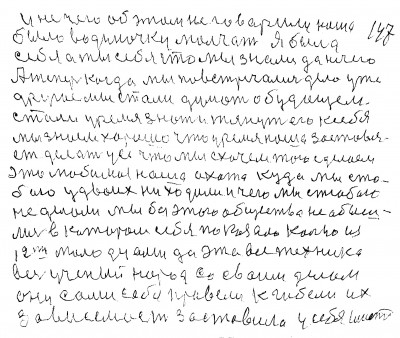 и не чего об этом не говарили наша 147
было водиночку молчат я была
себя ты себя что мы знали да нечего
А теперь когда мы повстречались дело уже
другое мы стали думат о будищем
стали время знат и тянут его к себе
мы знали харашо что уремя наша заставя-
ет делат усё что мы схочем того сделаем
это мобилная наша ахота куда мы сто-
бою удвоих ни ходили и чего мы стабою
не делали мы без этого общества не абаш-
лис в катором себя показала колцо из
12ти молодиами да эта все техника
весь ученый народ со своим делом
они сами себя привели к гибели их
зависемост заставила у себя имет